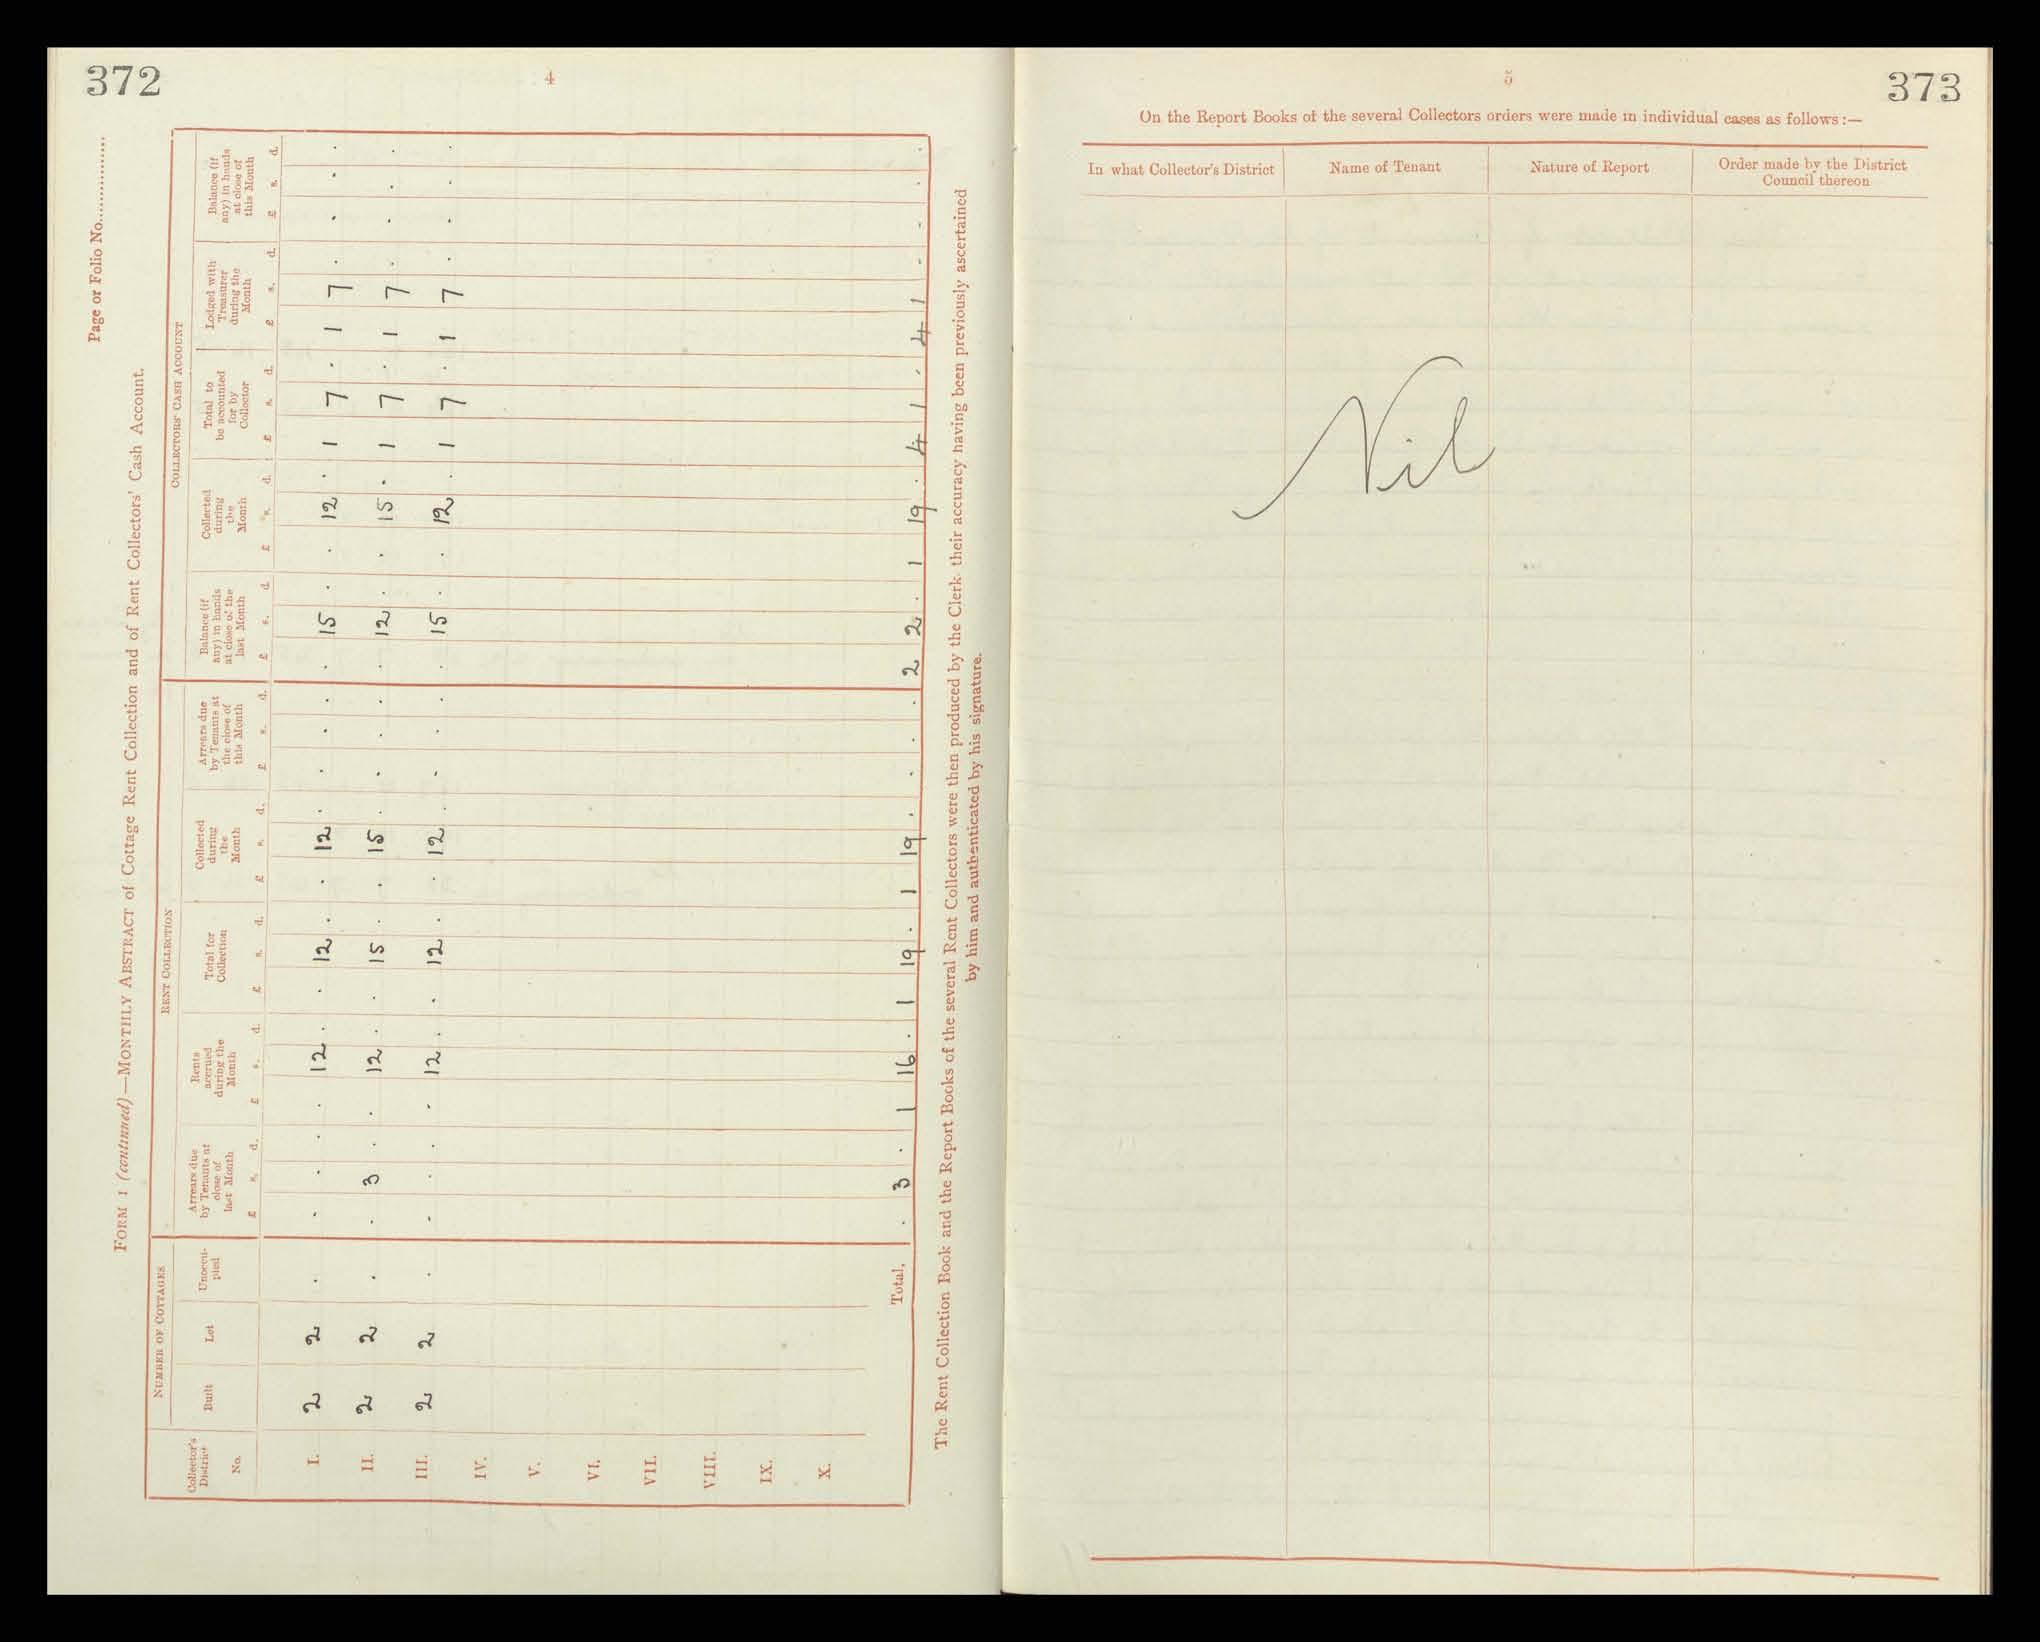 372
4
Page or Folio No..................
FORM 1 (continued)—MONTHLY ABSTRACT of Cottage Rent Collection and of Rent Collectors' Cash Account.
NUMBER OF COTTAGES
RENT COLLECTION
COLLECTORS' CASH ACCOUNT
Collector's District No.
Built
Let
Unoccupied
Arrears due by Tenants at close of last Month
Rents accrued during the Month
Total for Collection
Collected during the Month
Arrears due by Tenants at the close of this Month
Balance (if any) in hands at close of the last Month
Collected during the Month
Total to be accounted for by Collector
Lodged with Treasurer during the Month
Balance (if any) in hands at close of this Month
£ s. d. £ s. d. £ s. d. £ s. d. £ s. d. £ s. d. £ s. d. £ s. d. £ s. d. £ s. d.
I. 2 2 . . . . . 12 . . 12 . . 12 . . . . . 15 . . 12 . 1 7 . 1 7 . . . .
II. 2 2 . . 3 . . 12 . . 15 . . 15 . . . . . 12 . . 15 . 1 7 . 1 7 . . . .
III. 2 2 . . . . . 12 . . 12 . . 12 . . . . . 15 . . 12 . 1 7 . 1 7 . . . .
IV.
V.
VI.
VII.
VIII.
IX.
X.
Total, . 3 . 1 16 . 1 19 . 1 19 . . . . 2 2 . 1 19 . 4 1 . 4 1 - - . .
The Rent Collection Book and the Report Books of the several Rent Collectors were then produced by the Clerk, their accuracy having been previously ascertained
by him and authenticated by his signature.
5
373
On the Report Books of the several Collectors orders were made in individual cases as follows:—
In what Collector's District
Name of Tenant
Nature of Report
Order made by the District
Council thereon
Nil